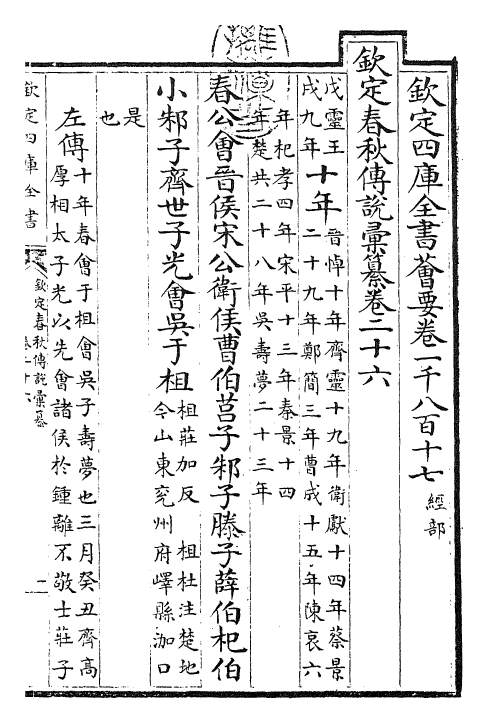 欽定四庫全書薈要卷一千八百十七 經部
欽定春秋傳說彙纂卷二十六
戊靈王
戌九年
十年
晉悼十年齊靈十九年衞獻十四年蔡景
二十九年鄭簡三年曹成十五年陳哀六
年杞孝四年宋平十三年秦景十四
年楚共二十八年吳壽夢二十三年
春公會晉侯宋公衞侯曹伯莒子邾子滕子薛伯杞伯
小邾子齊世子光會吳于柤
柤莊加反 柤杜注楚地
今山東兗州府嶧縣泇口
是
也
左傳
十年春會于柤會吳子壽夢也三月癸丑齊高
厚相太子光以先會諸侯於鍾離不敬士莊子
欽定四庫全書
欽定春秋傳說彙纂
卷二十六
一